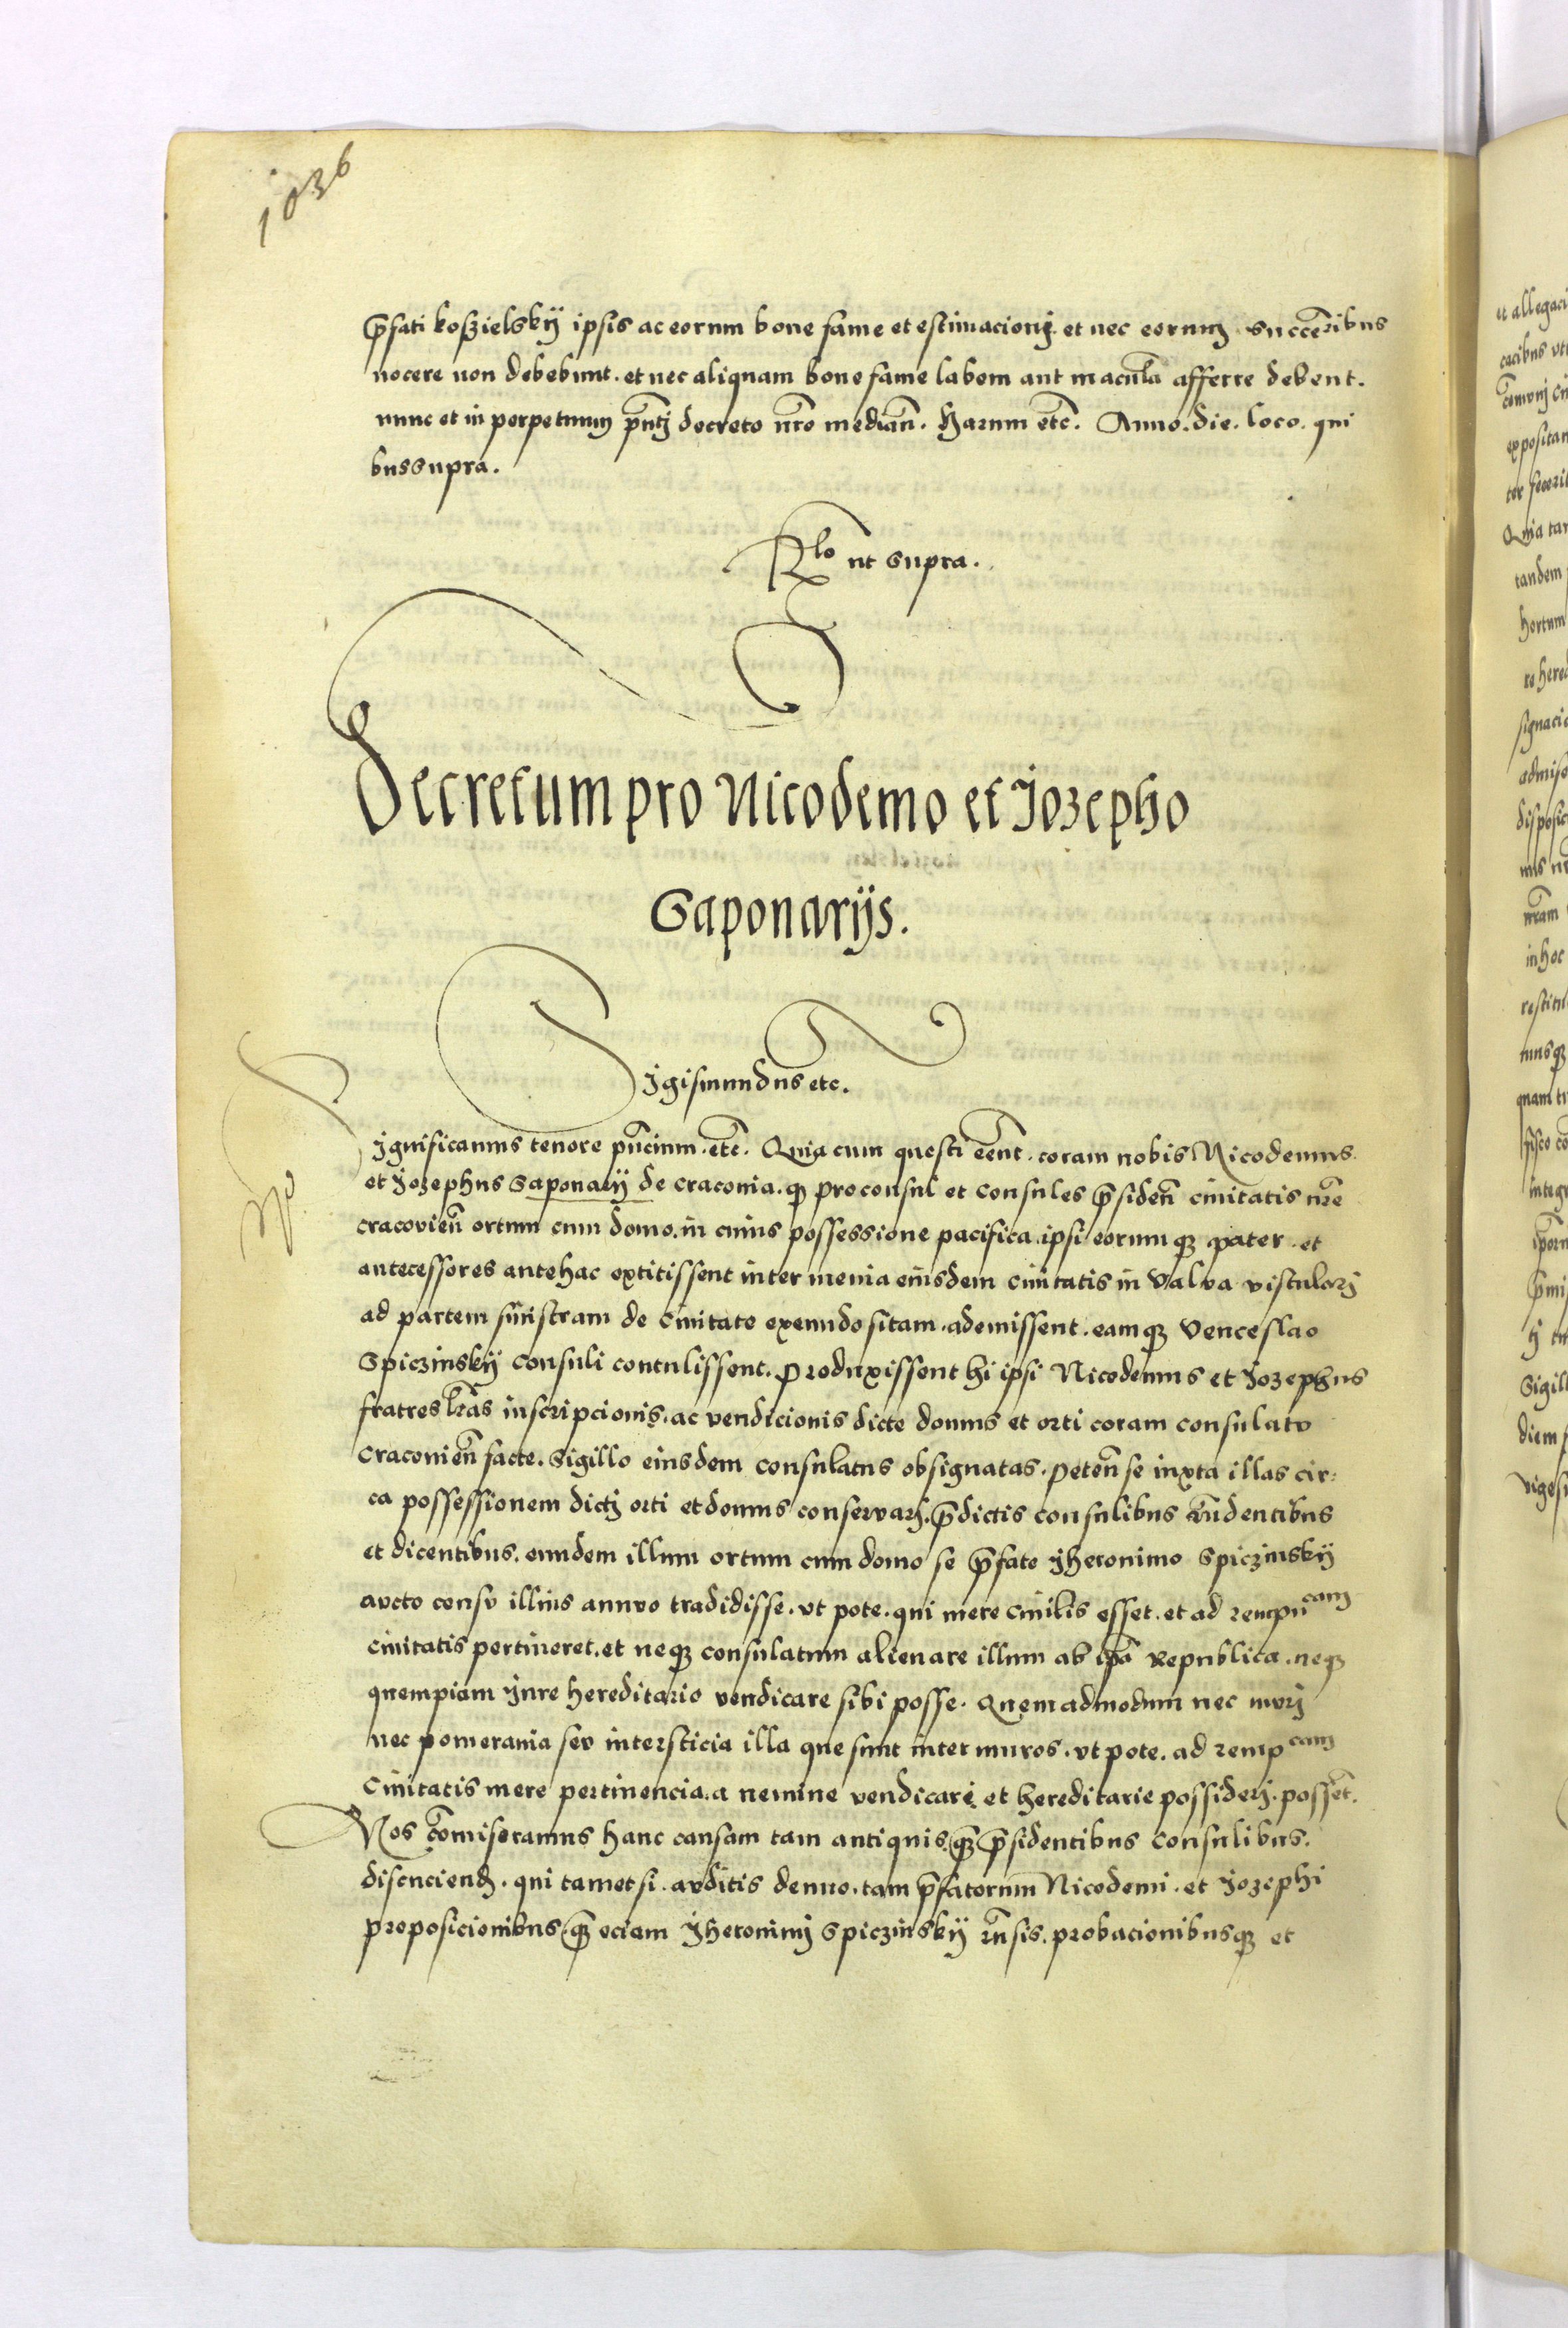 1036
p̃fati koſzielskÿ ipsis ac eorum bone fame et estimacionj. et nec eorum succẽribus
nocere non debebunt. et nec aliquam bone fame labem aut maculã afferre debent.
nunc et in perpetuum p̃ntj decreto nr̃o mediañ. Harum etc̃. Anno. die. loco. qui
bus supra.
Rlo ut supra.
Decretum pro Nicodemo et Jozepho
Saponarijs.
Sigismundus etc.
Significamus tenore pñcium. etc̃. Quia cum questi eẽnt. coram nobis Nicodemus.
et Jozephus saponarÿ de cracouia. q̃ proconsul et consules p̃sideñ ciuitatis nr̃e
cracovieñ ortum cum domo. in cuius possessione pacifica. ipsi eorumq̃ pater. et
antecessores antehac extitissent inter menia eiusdem ciuitatis in valva vistularj
ad partem sinistram de ciuitate exeundo sitam. ademissent. eamq̃ venceslao
Spiczinskÿ consuli contulissent. Produxissent hi ipsi Nicodemus et Jozephus
fratres lr̃as inscripcionis. ac vendicionis dicte domus et orti coram consulatu
cracouieñ facte. Sigillo eiusdem consulatus obsignatas. peteñ se iuxta illas cir:
ca possessionem dictj orti et domus conservarj. p̃dictis consulibus rñdentibus
et dicentibus. eundem illum ortum cum domo se p̃fato Jheronimo Spiczinskÿ
aucto censu illius annuo tradidisse. vt pote. qui mere ciuilis esset. et ad rempucam
ciuitatis pertineret. et neq̃ consulatum alienare illum ab ip̃a Republica. neq̃
quempiam Jure hereditario vendicare sibi posse. Quemadmodum nec murj
nec pomerania seu intersticia illa que sunt inter muros. vt pote. ad rempcam
Ciuitatis mere pertinencia. a nemine vendicarj et hereditarie possiderj. posset̃.
Nos com̃iseramus hanc causam tam antiquis. q̃ p̃sidentibus consulibus.
discuciend. qui tametsi. auditis denuo. tam p̃fatorum Nicodemi. et Jozephi
proposicionibus q̃ eciam Jheronimj Spiczinskÿ rñsis. probacionibusq̃ et